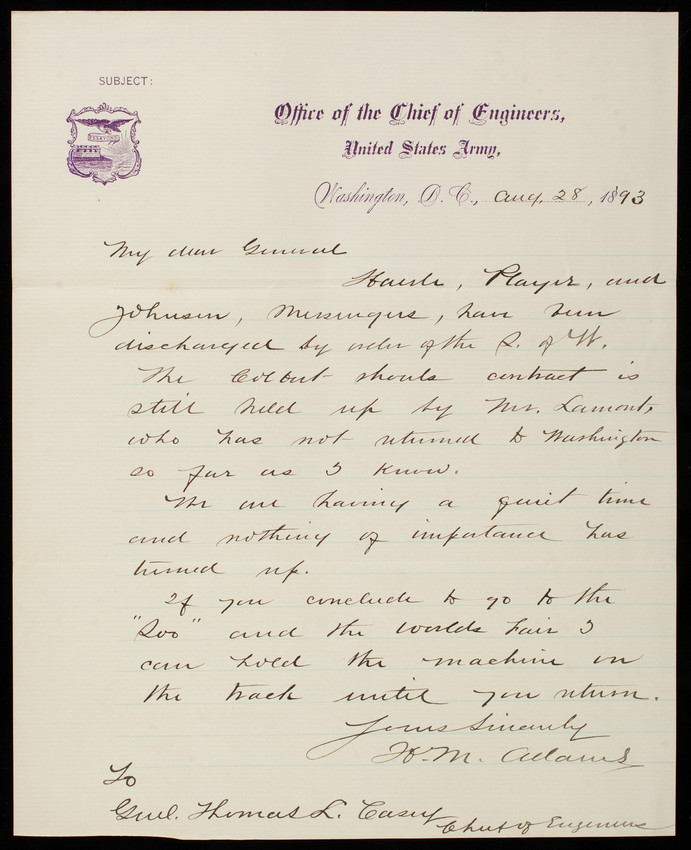 SUBJECT:
ESSAYONS
Office of the Chief of Engineers,
United States Army,
Washington, D. C., Aug. 28, 1893
My dear General
Player, and
Johnson, Messengers, have been
discharged by order of the S. of W.
The Colbert shoals contract is
still held up by Mr. Lamont,
who has not returned to Washington
so far as I know.
We are having a quiet time
and nothing of importance has
turned up.
If you conclude to go to the
"Soo" and the Worlds Fair I
can hold the machine on
the track until you return.
Yours Sincerely
H. M. Adams
To
Genl. Thomas L. Casey
Chief of Engineers